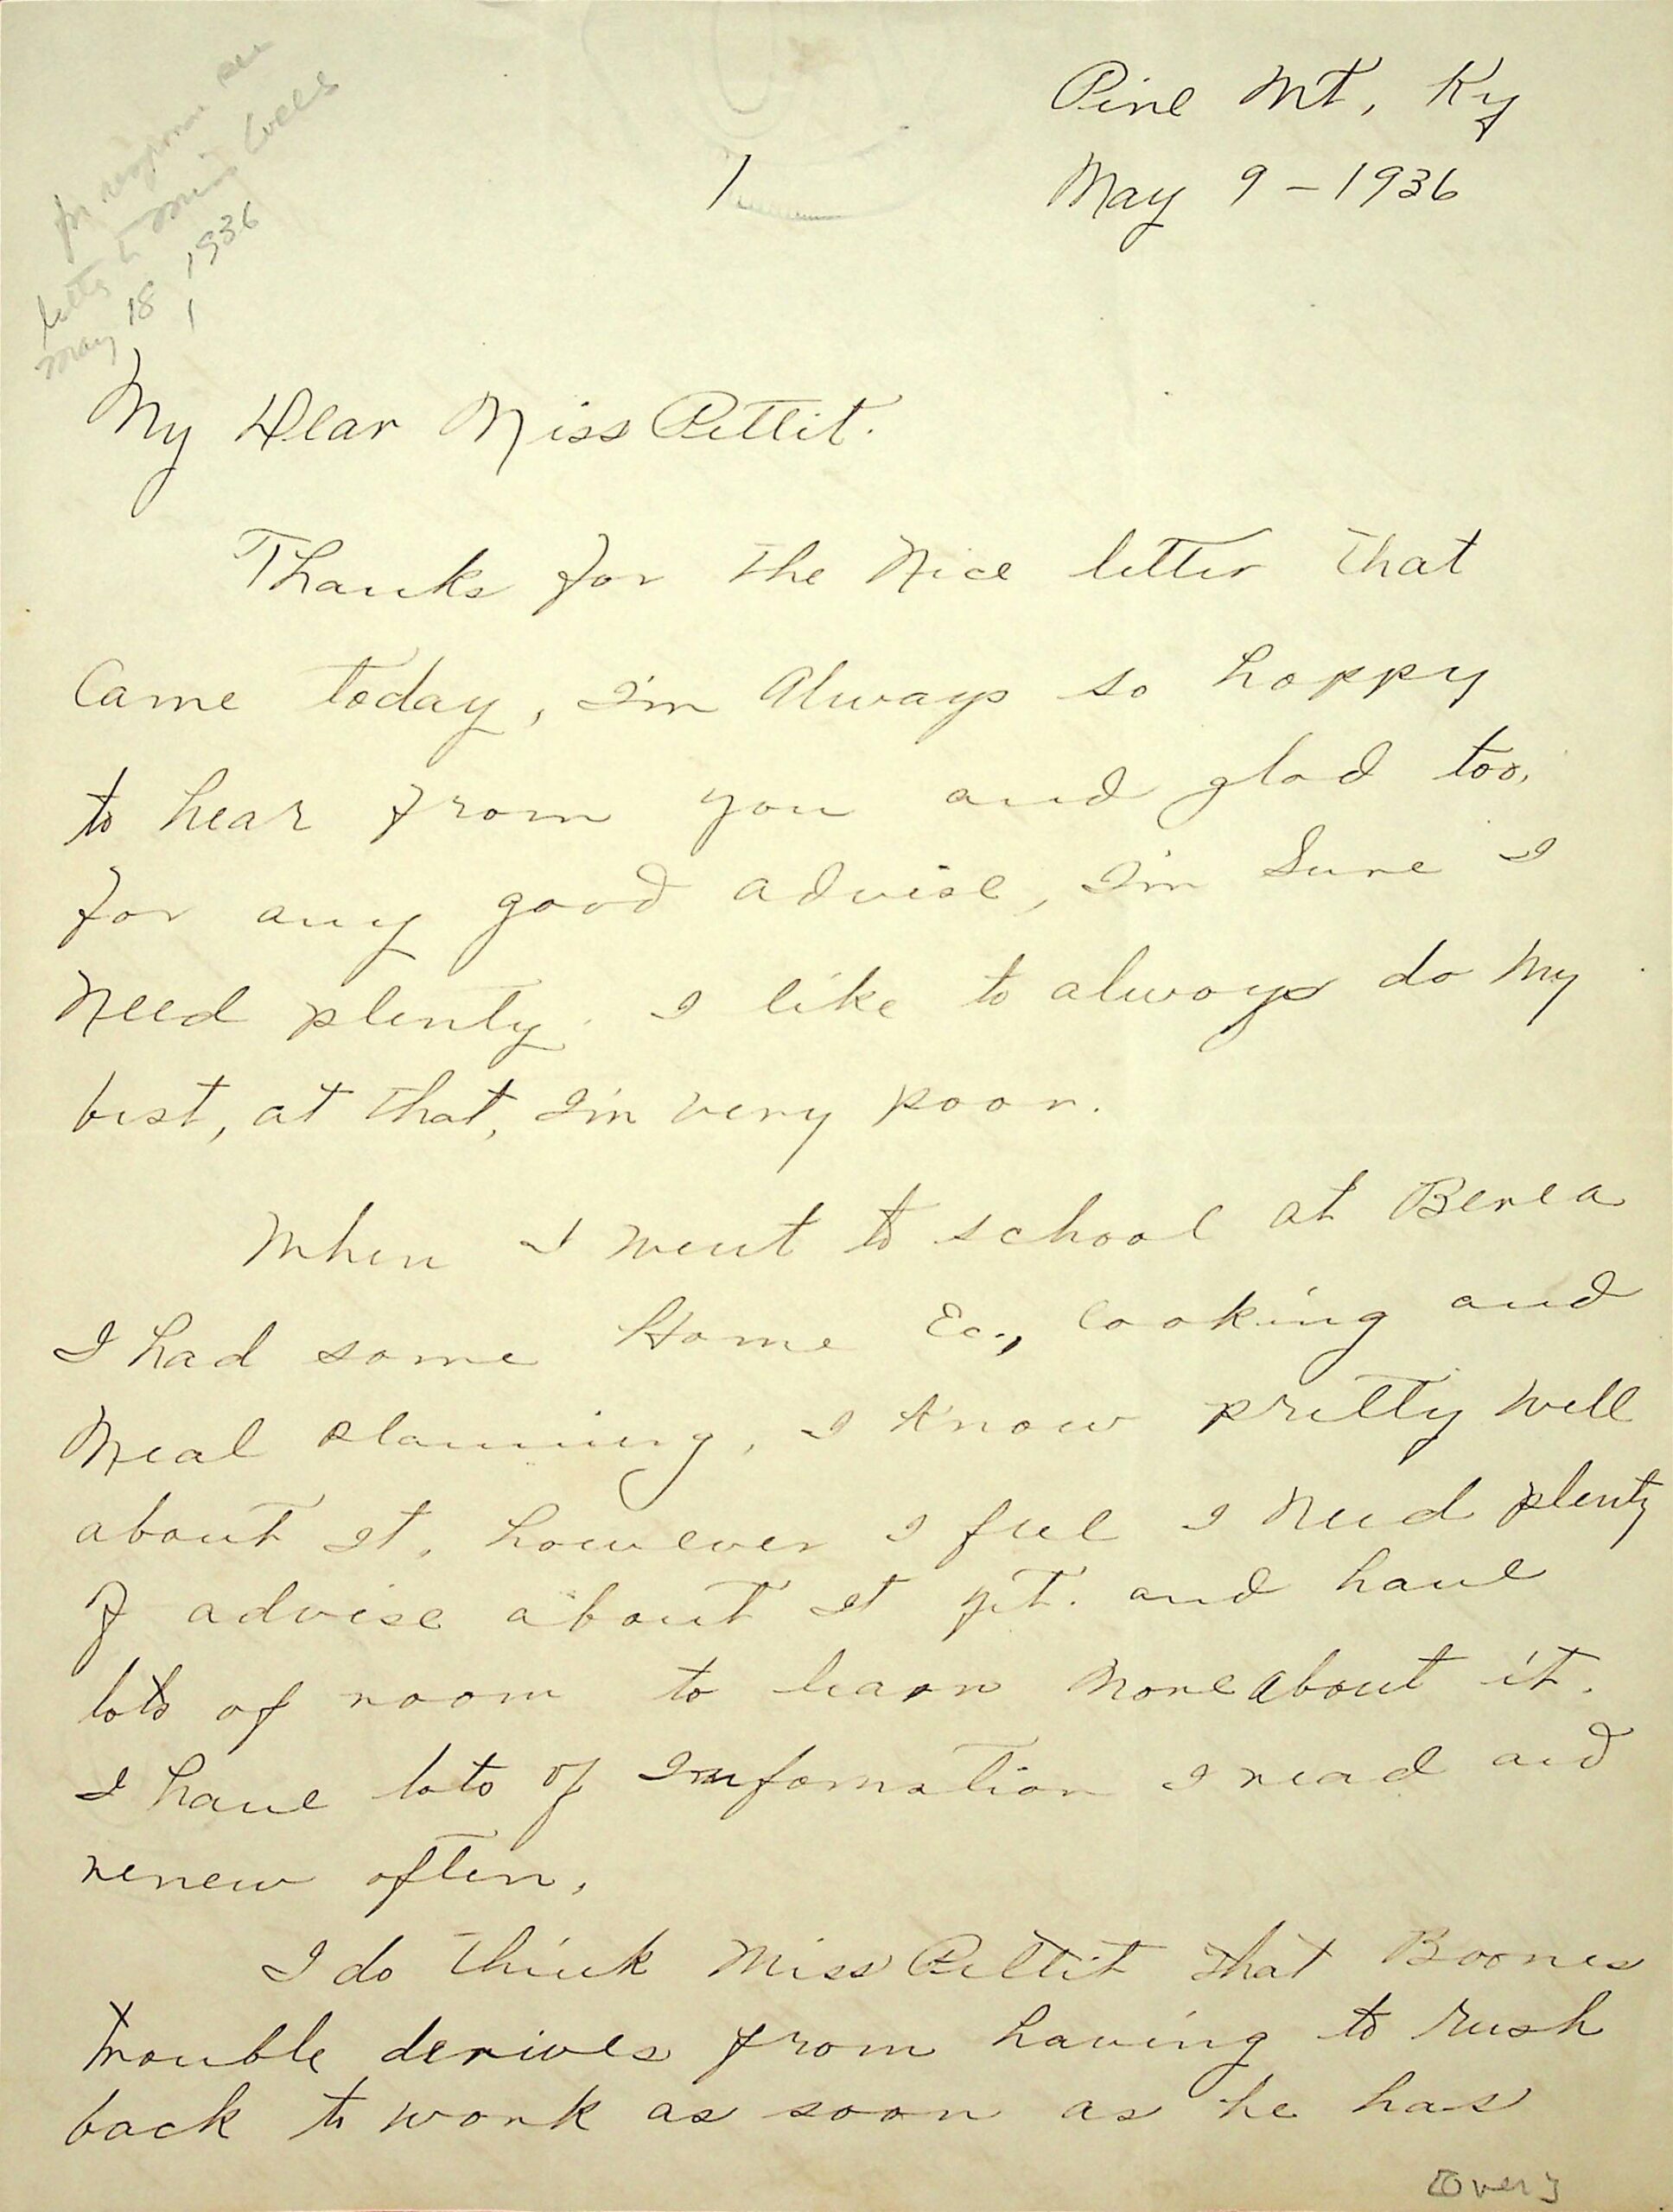 for response see
letter to Miss Wells
May 18 1936
1
Pine Mt, Ky
1
May 9 – 1936
My Dear Miss Pettit.
Thanks for the Nice letter that
Came today, I'm Always so happy
to hear from you and glad too,
for any good advise, I'm Sure I
Need plenty. I like to always do My
best, at that, I'm very poor.
When I went to school at Berea
I had some Home Ec., Cooking and
Meal planning, I know pretty well
about it, however I feel I Need plenty
of advise about it yet. and have
lots of room to learn More about it.
I have lots of Imfomation I read and
renew often,
I do think Miss Pettit that Boones
trouble derives from having to rush
back to work as soon as he has
[Over]